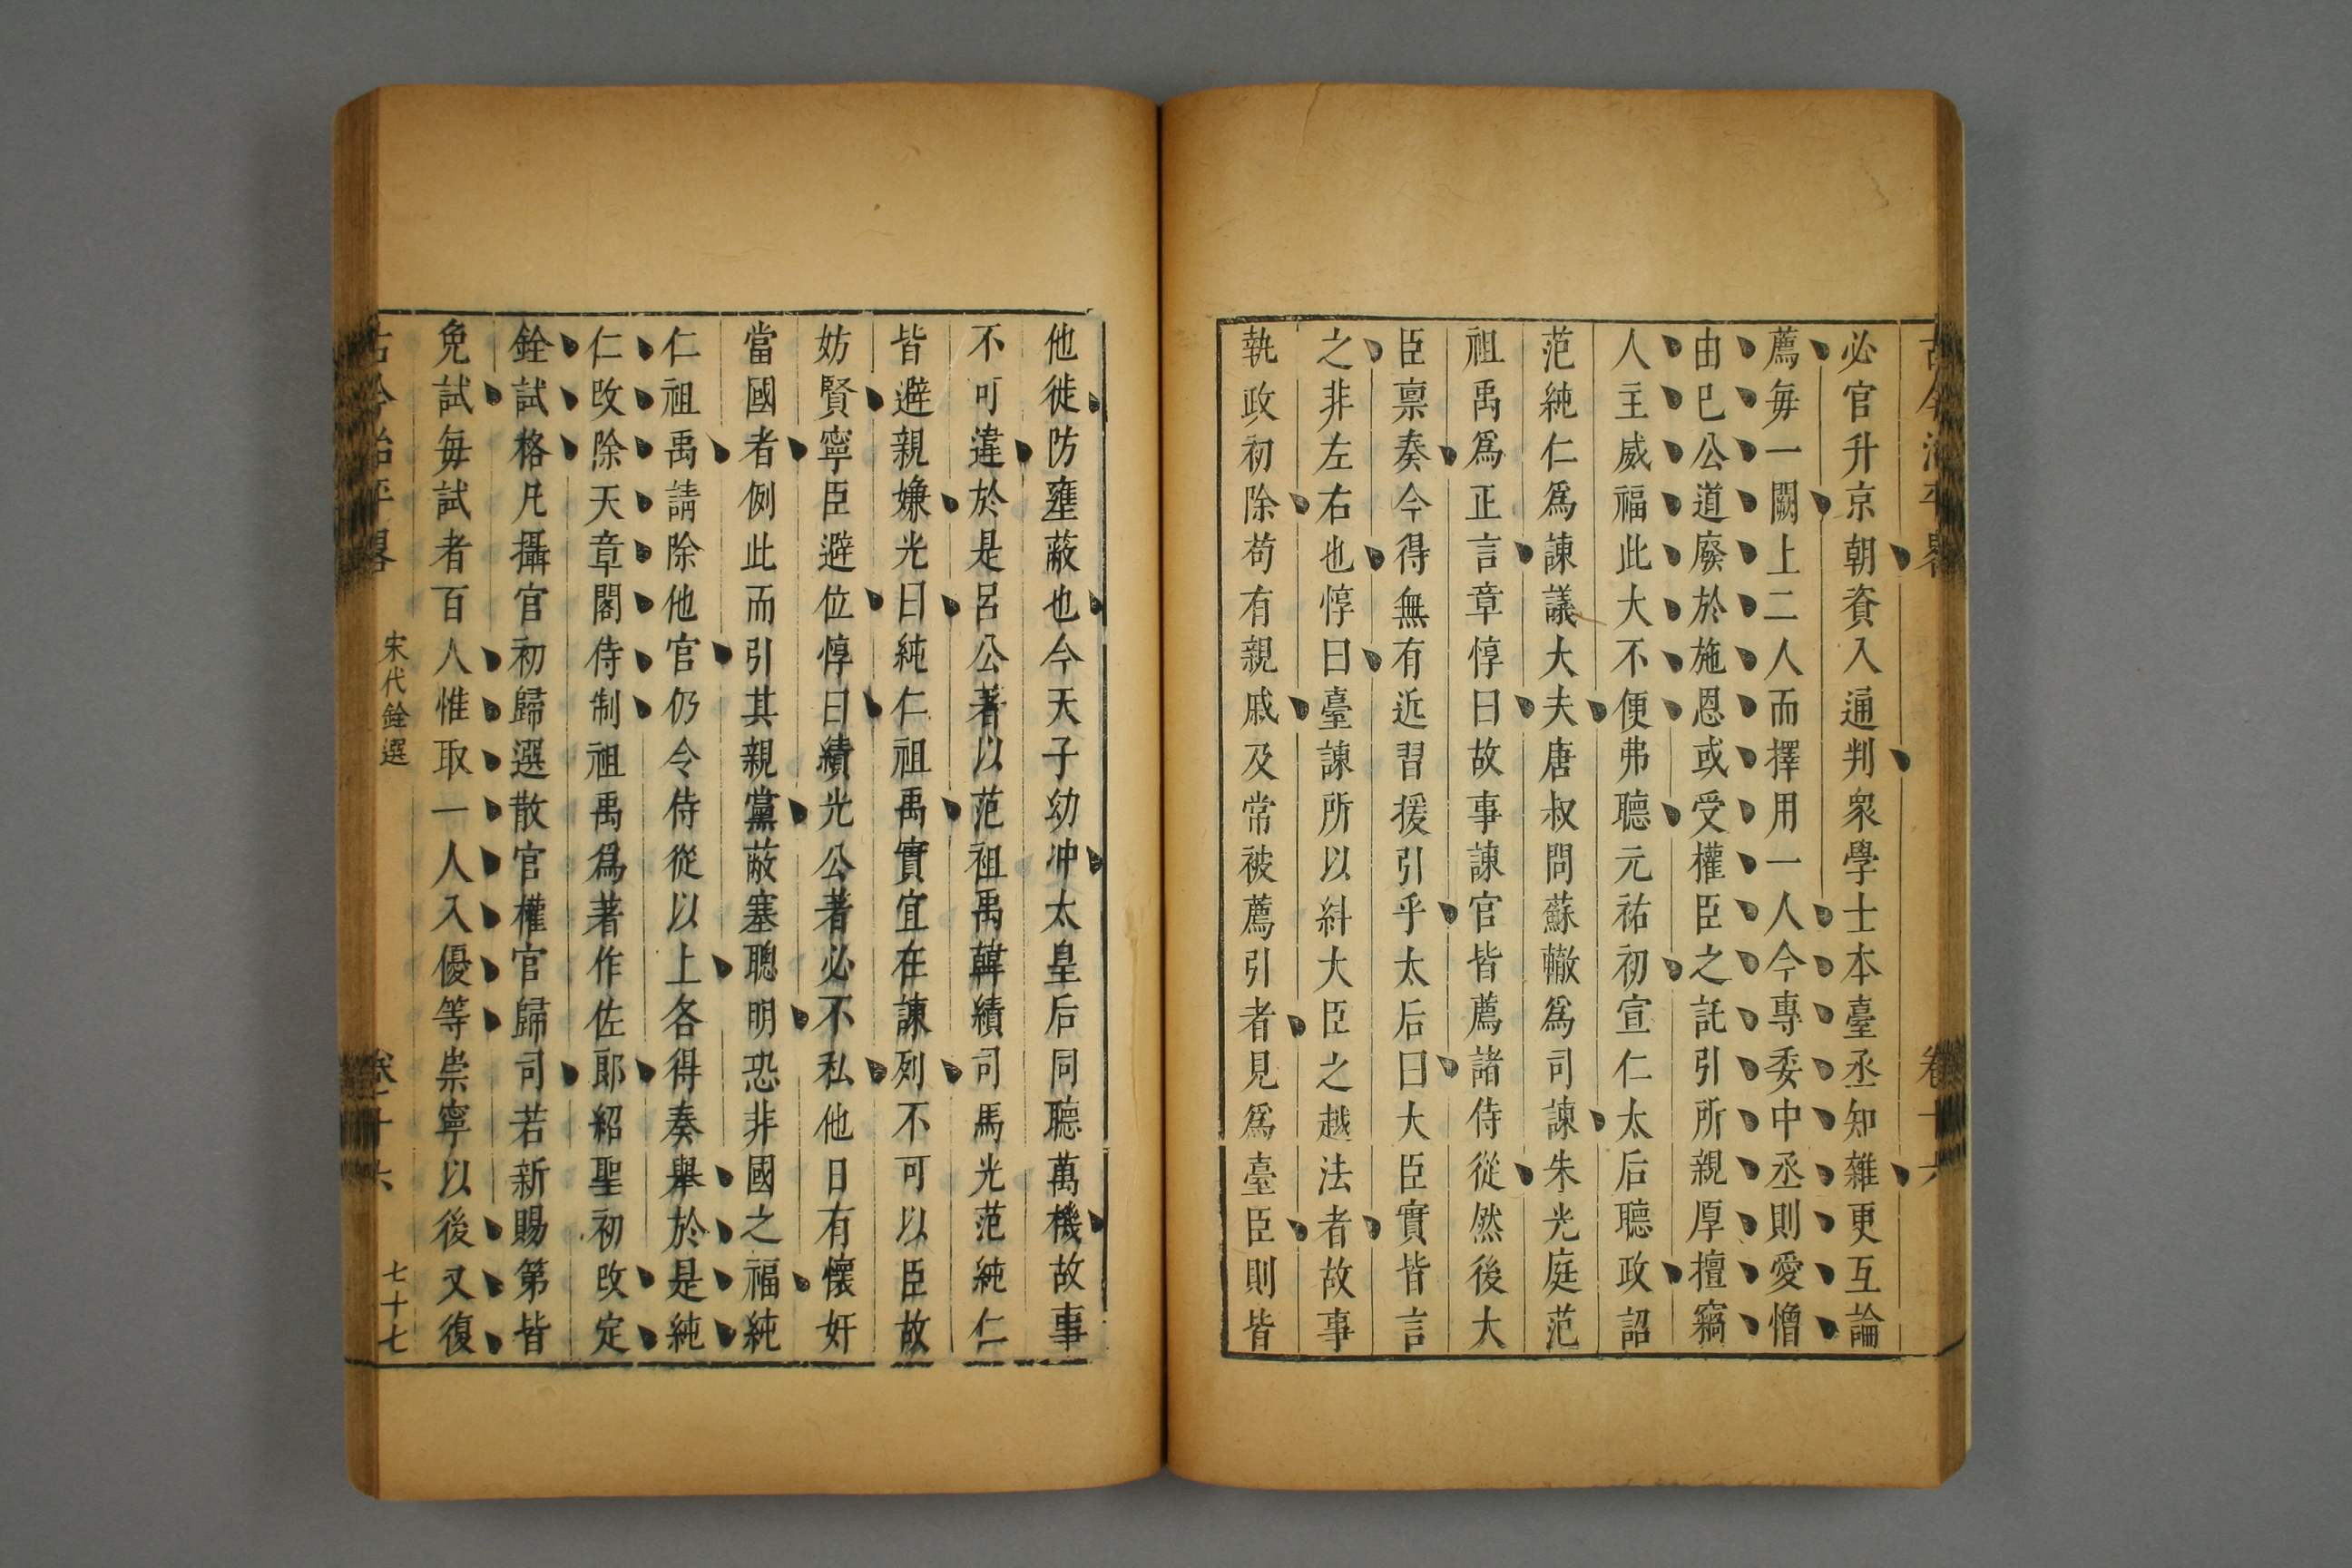 古今治平畧
卷十六
必官升京朝資入通判衆學士本臺丞知雜更互論
薦每一闕上二人而擇用一人今專委中丞則愛憎
由已公道廢於施恩或受權臣之託引所親厚擅竊
人主威福此大不便弗聽元祐初宣仁太后聽政詔
范純仁爲諫議大夫唐叔問蘇轍爲司諫朱光庭范
祖禹爲正言章惇曰故事諫官皆薦諸侍從然後大
臣禀奏今得無有近習援引乎太后曰大臣實皆言
之非左右也惇曰臺諫所以糾大臣之越法者故事
執政初除苟有親戚及常被薦引者見爲臺臣則皆
他徙防壅蔽也今天子幼冲太皇后同聽萬機故事
不可違於是呂公著以范祖禹韓績司馬光范純仁
皆避親嫌光曰純仁祖禹實宜在諫列不可以臣故
妨賢寧臣避位惇曰績光公著必不私他日有懷奸
當國者例此而引其親黨蔽塞聰明恐非國之福純
仁祖禹請除他官仍令侍從以上各得奏舉於是純
仁改除天章閣侍制祖禹爲著作佐郎紹聖初改定
銓試格凡攝官初歸選散官權官歸司若新賜第皆
免試每試者百人惟取一人入優等崇寧以後又復
古今治平畧
宋代銓選
卷十六
七十七